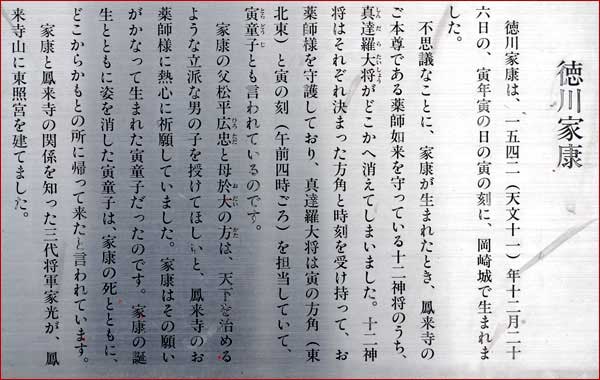 徳川家康
徳川家康は、一五四二（天文十一）年十二月二十
六日の、寅年寅の日の寅の刻に、岡崎城で生まれま
した。
不思議なことに、家康が生まれたとき、鳳来寺の
ご本尊である薬師如来を守っている十二神将のうち、
真達羅大将がどこかへ消えてしまいました。十二神
将はそれぞれ決まった方角と時刻を受け持って、お
薬師様を守護しており、真達羅大将は寅の方角（東
北東）と寅の刻（午前四時ごろ）を担当していて、
寅童子とも言われているのです。
家康の父松平広忠と母於大の方は、天下を治める
ような立派な男の子を授けてほしいと、鳳来寺のお
薬師様に熱心に祈願していました。家康はその願い
がかなって生まれた寅童子だったのです。家康の誕
生とともに姿を消した寅童子は、家康の死とともに、
どこからかもとの所に帰って来たと言われています。
家康と鳳来寺の関係を知った三代将軍家光が、鳳
来寺山に東照宮を建てました。